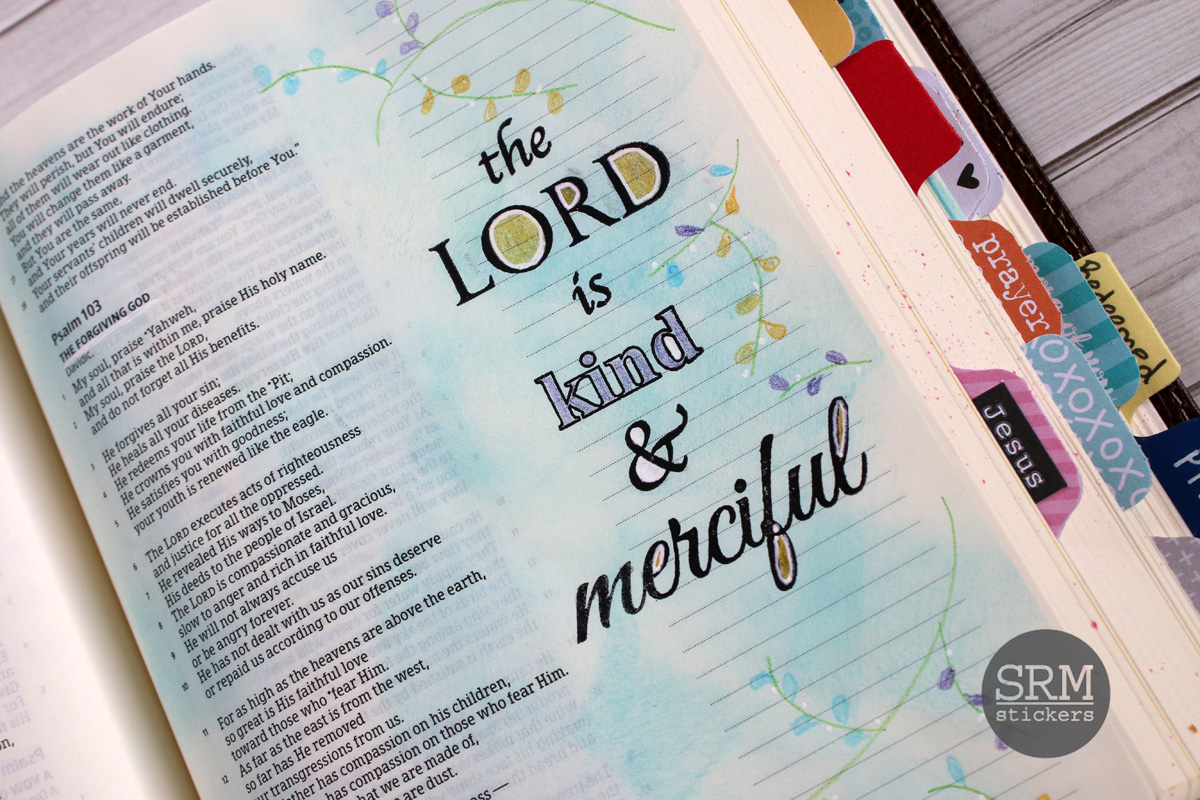 nd the heavens are the work of Your hands.
They will perish, but You will endure;
all of them will wear out like clothing.
You will change them like a garment,
and they will pass away.
But You are the same,
and Your years will never end.
Your servants' children will dwell securely,
and their offspring will be established before You."
Psalm 103
THE FORGIVING GOD
Davidic.
1 My soul, praise Yahweh,
and all that is within me, praise His holy name.
2 My soul, praise the LORD,
and do not forget all His benefits.
3 He forgives all your sin;
He heals all your diseases.
4 He redeems your life from the Pit;
He crowns you with faithful love and compassion.
5 He satisfies you with goodness;
your youth is renewed like the eagle.
6 The LORD executes acts of righteousness
and justice for all the oppressed.
7 He revealed His ways to Moses,
His deeds to the people of Israel.
8 The LORD is compassionate and gracious,
slow to anger and rich in faithful love.
9 He will not always accuse us
or be angry forever.
10 He has not dealt with us as our sins deserve
or repaid us according to our offenses.
11 For as high as the heavens are above the earth,
so great is His faithful love
toward those who fear Him.
12 As far as the east is from the west,
so far has He removed
our transgressions from us.
ther has compassion on his children,
has compassion on those who fear Him.
hat we are made of,
are dust.
ness —
the
LORD
is
kind
&
merciful
prayer
Redeemed
xoxoxoxo
Jesus
SRM
stickers